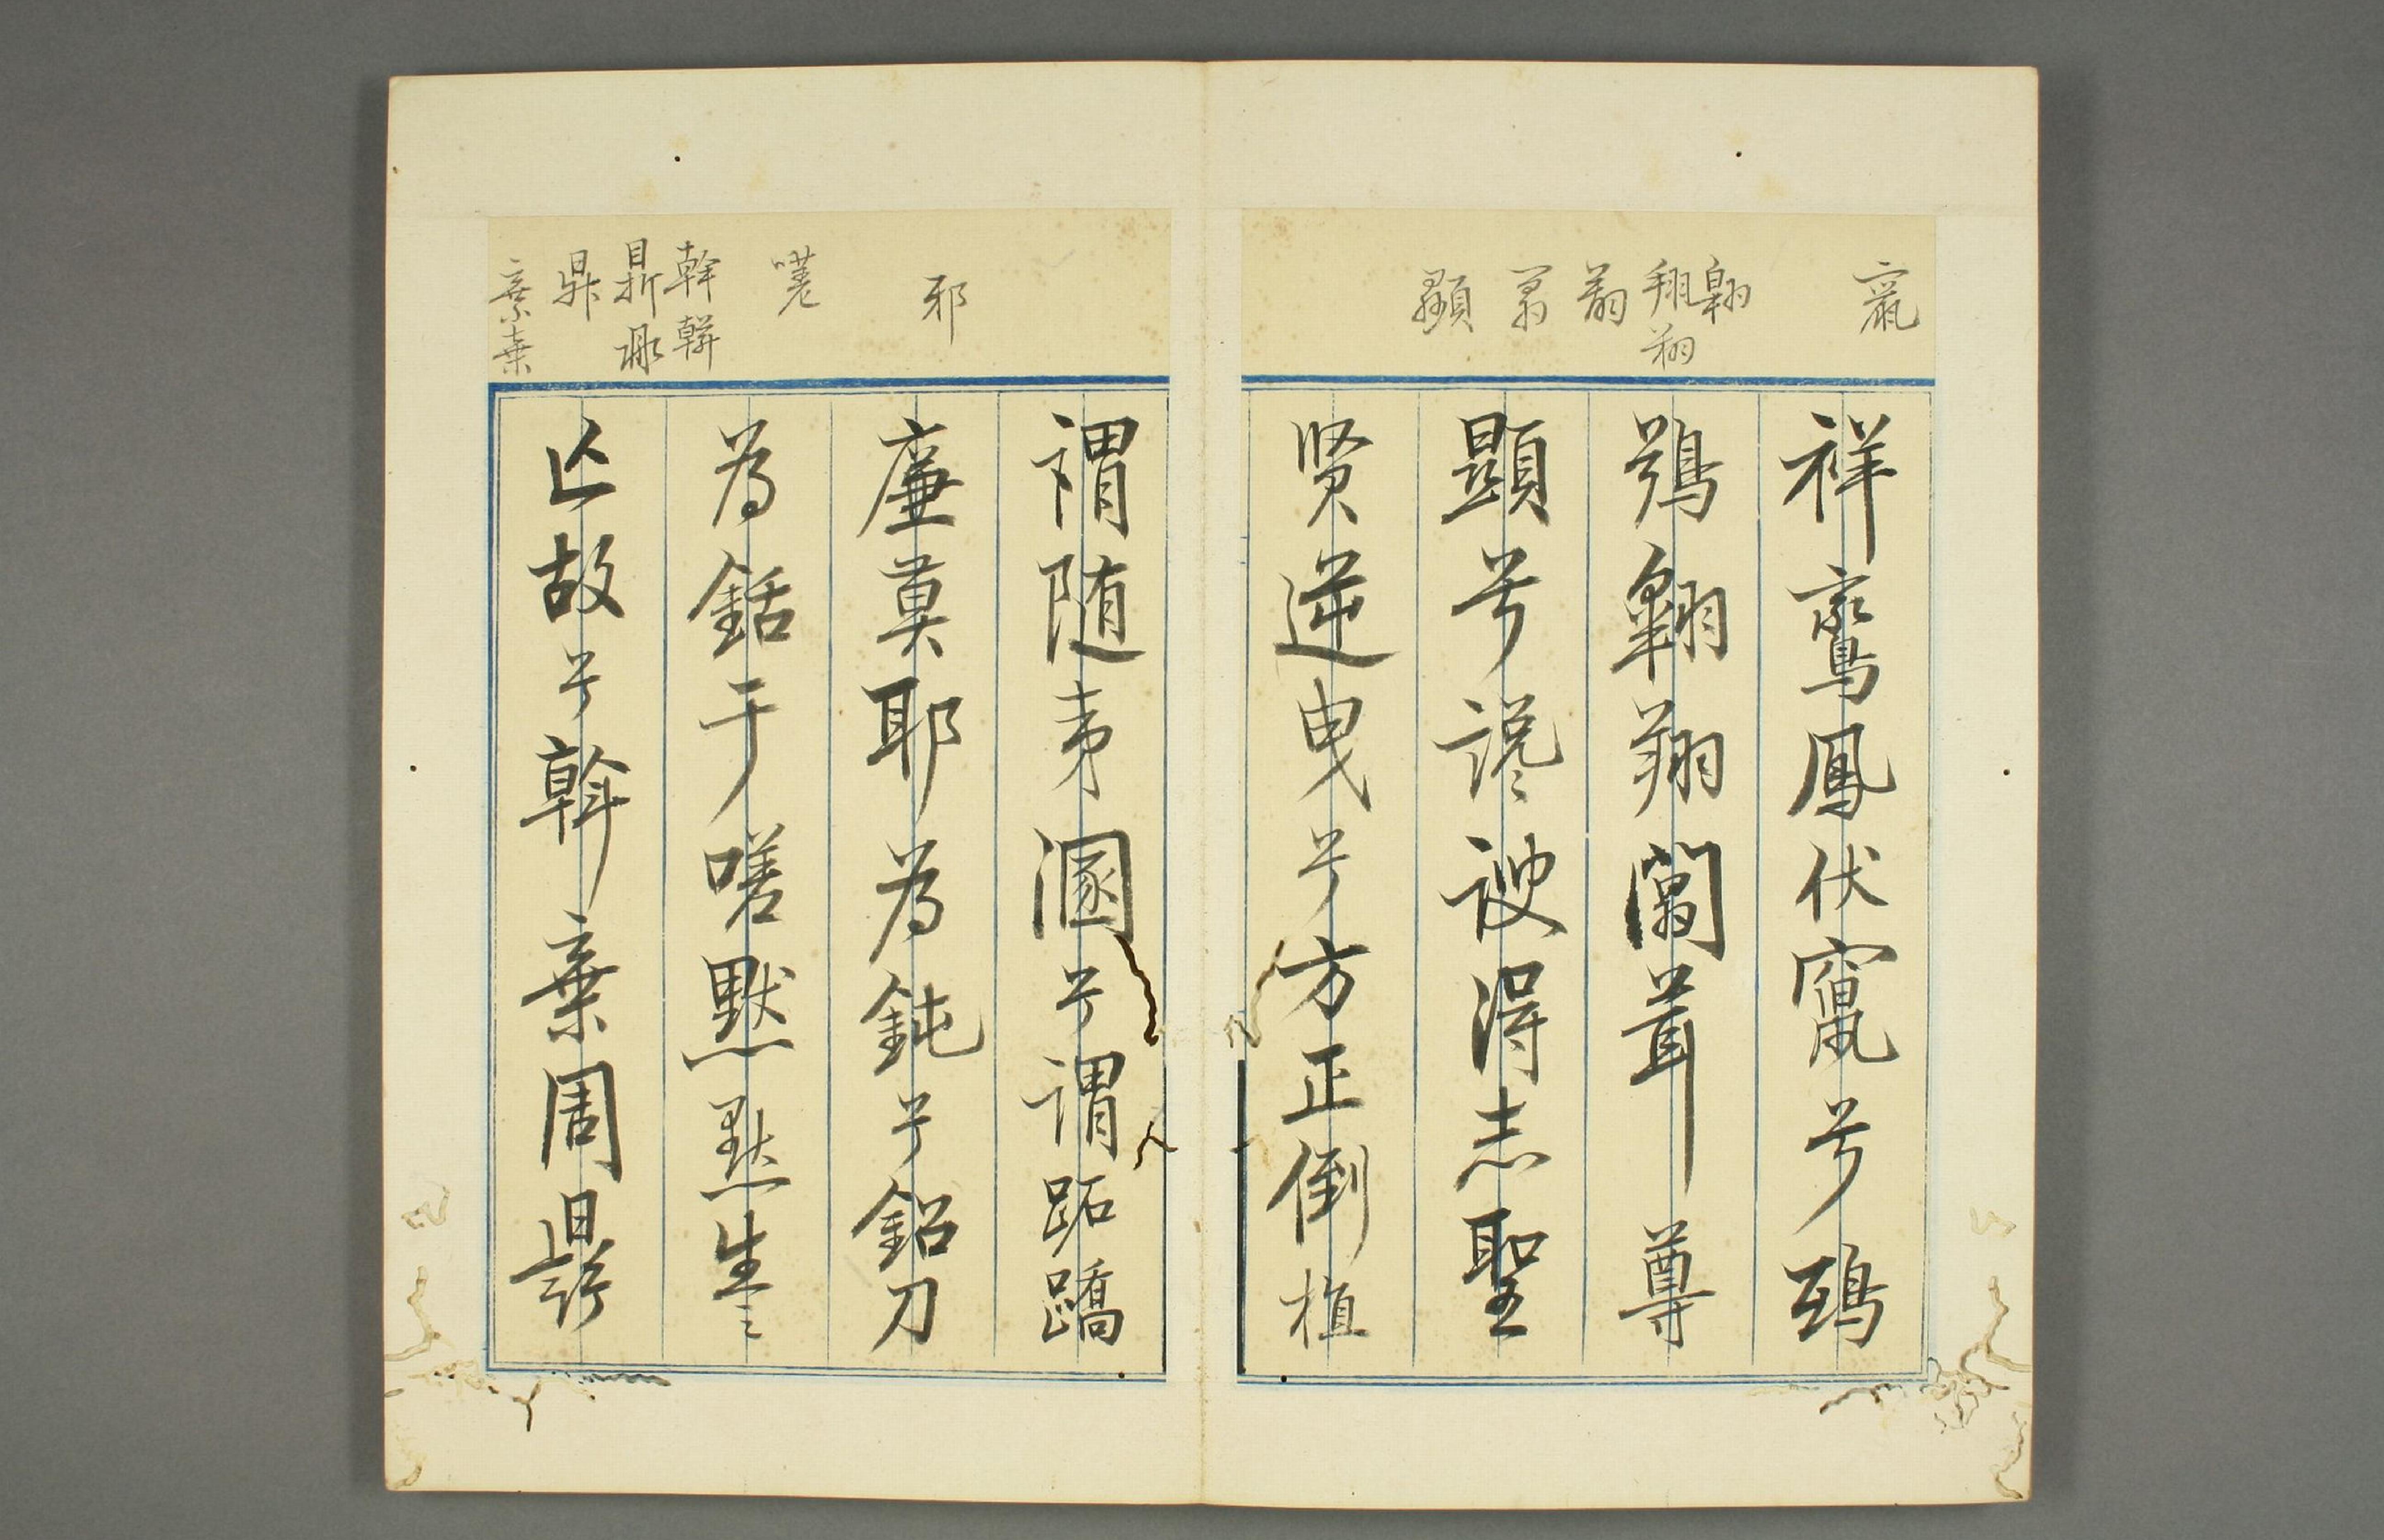 竄
翱
翔
翔
翦
翦
顯
祥鸞鳳伏竄兮鴟
鴞翱翔闒茸尊
顯兮讒諛得志聖
賢逆曳兮方正倒植
邪
嗟
幹
鼎
棄棄
謂随夷溷兮謂跖蹻
廉莫耶為鈍兮鉛刀
為銛于嗟默默生之
亡故兮斡棄周鼎